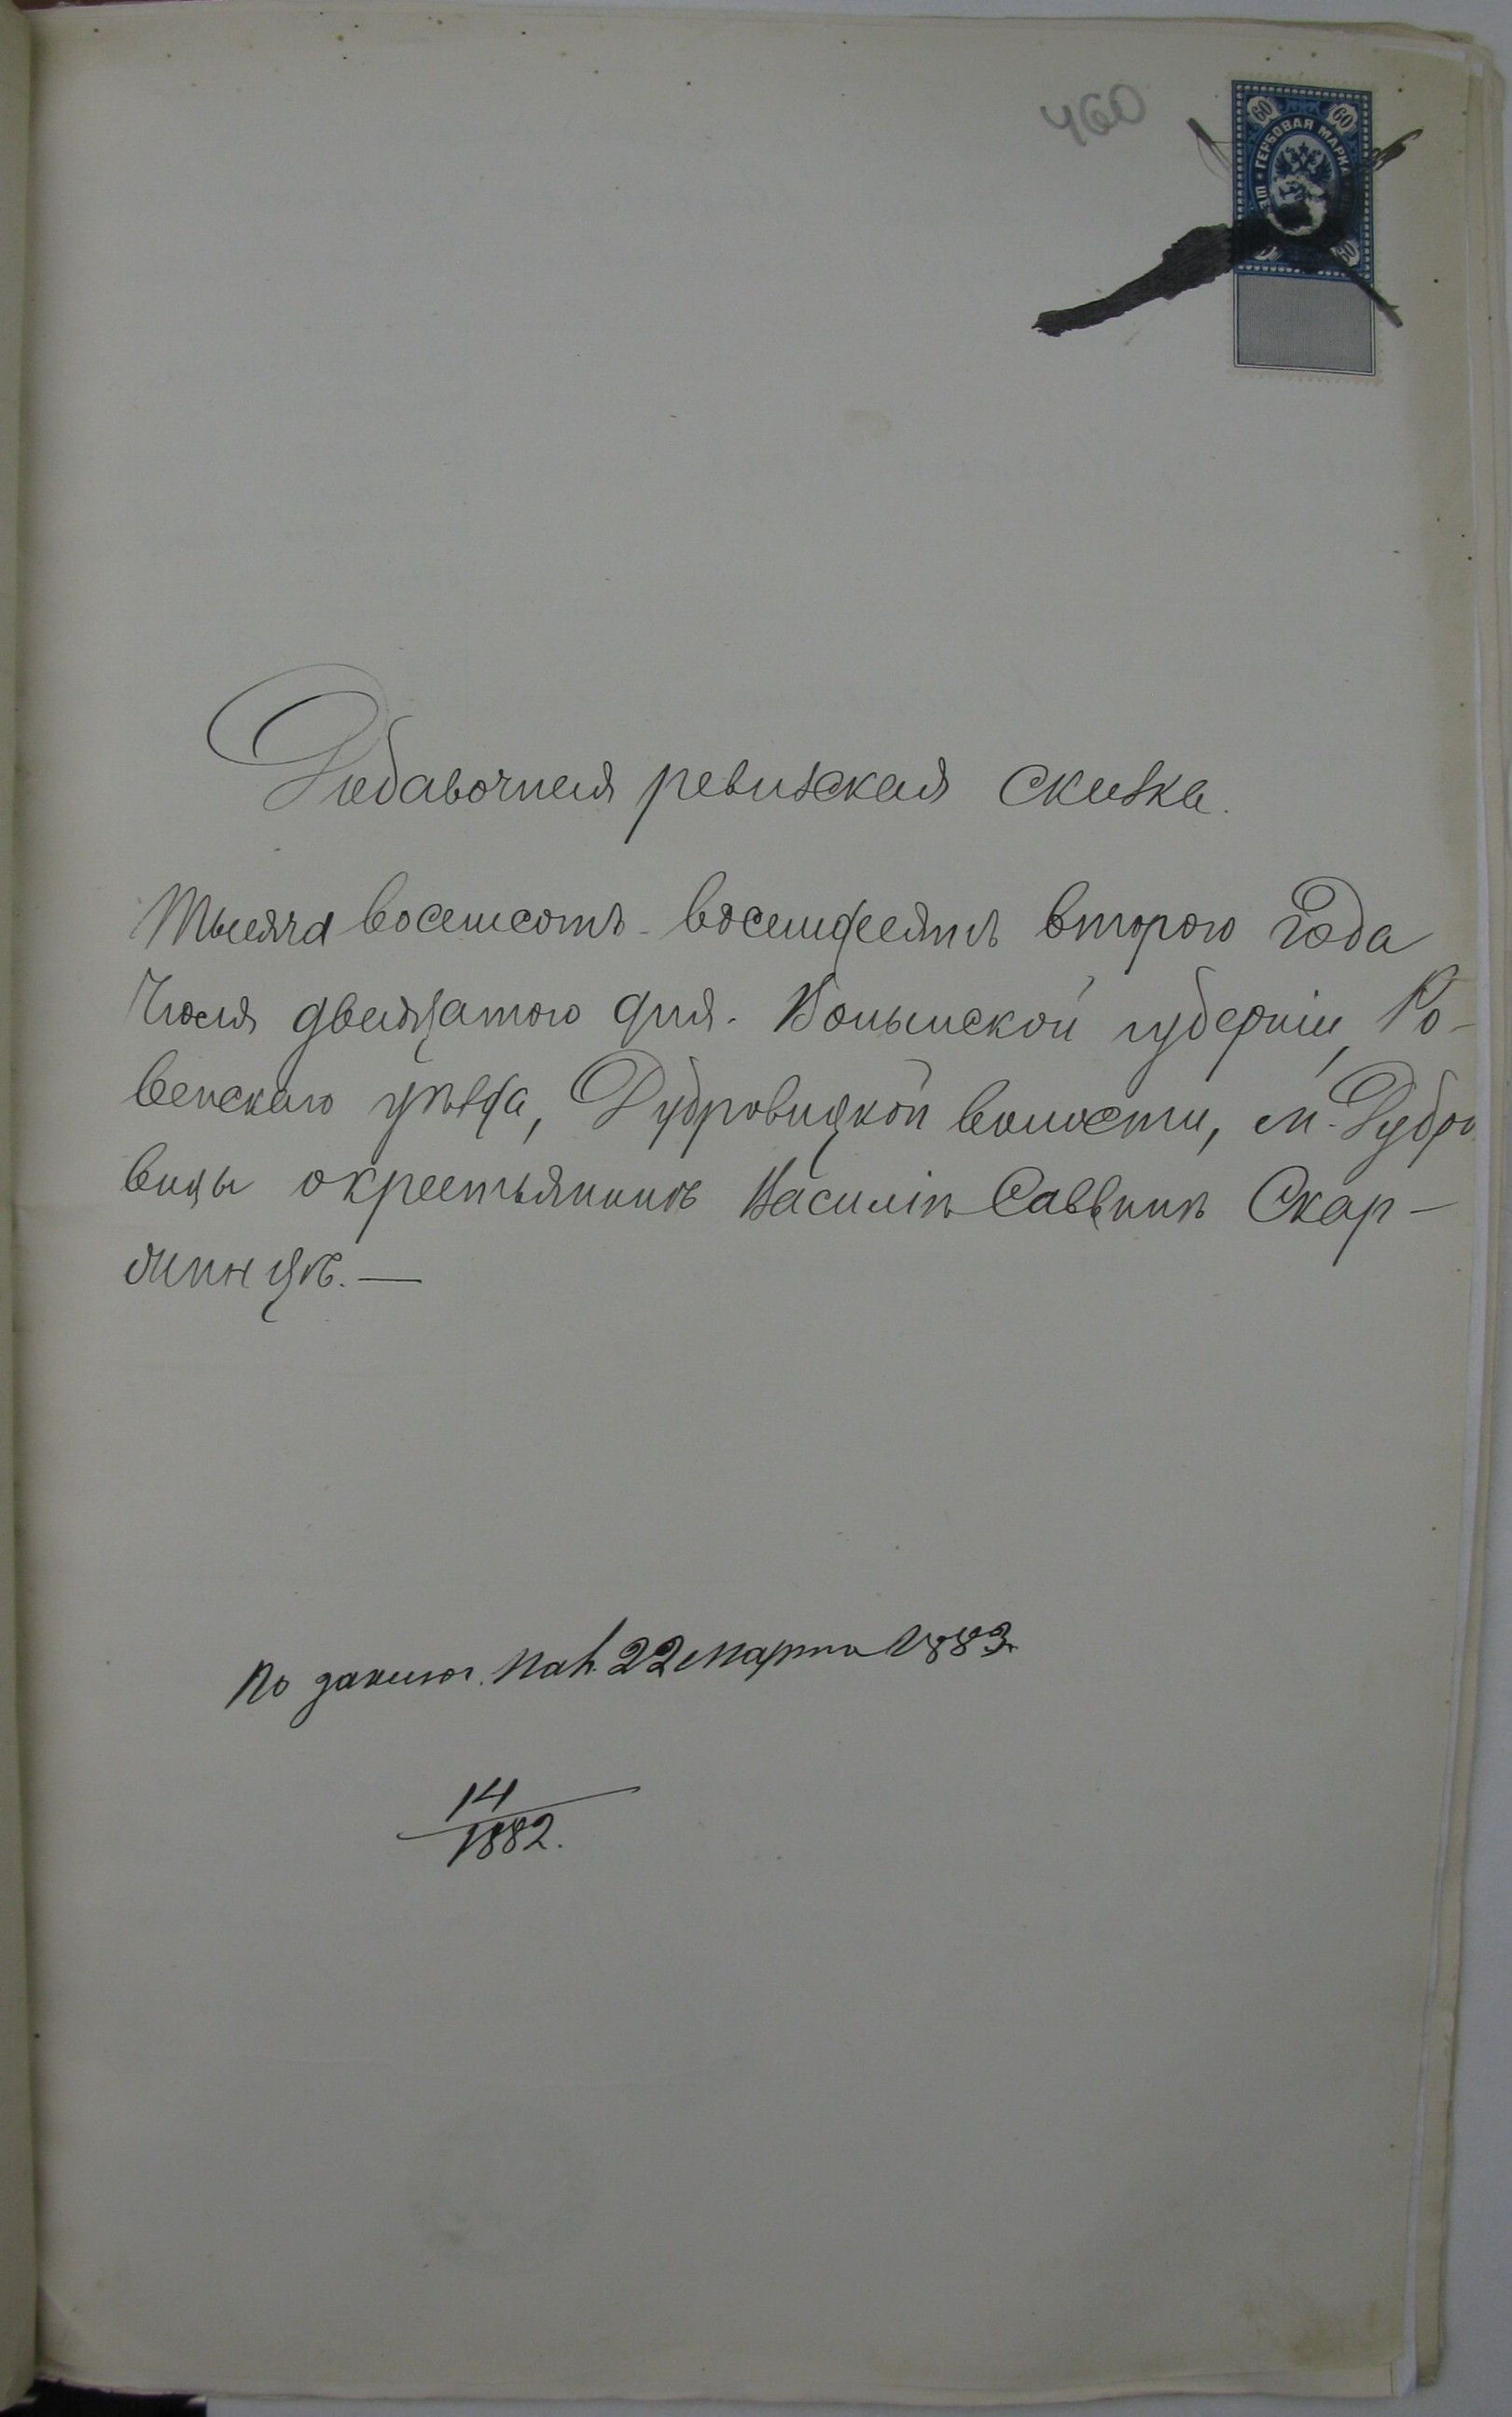 460
60 60
ГЕРБОВАЯ МАРКА
60
Добавочная ревизская сказка.
Тысяча восемсотъ восемдесятъ второго года
Іюля двадцатого дня. Волынской губерніи, Ро-
венскаго уѣзда, Дубровицкой волости, м. Дубро
вицы о крестьянинѣ Василіѣ Саввинѣ Скар-
жинцѣ. —
По заключ. Пал. 22 марта 1883.
14
1882.